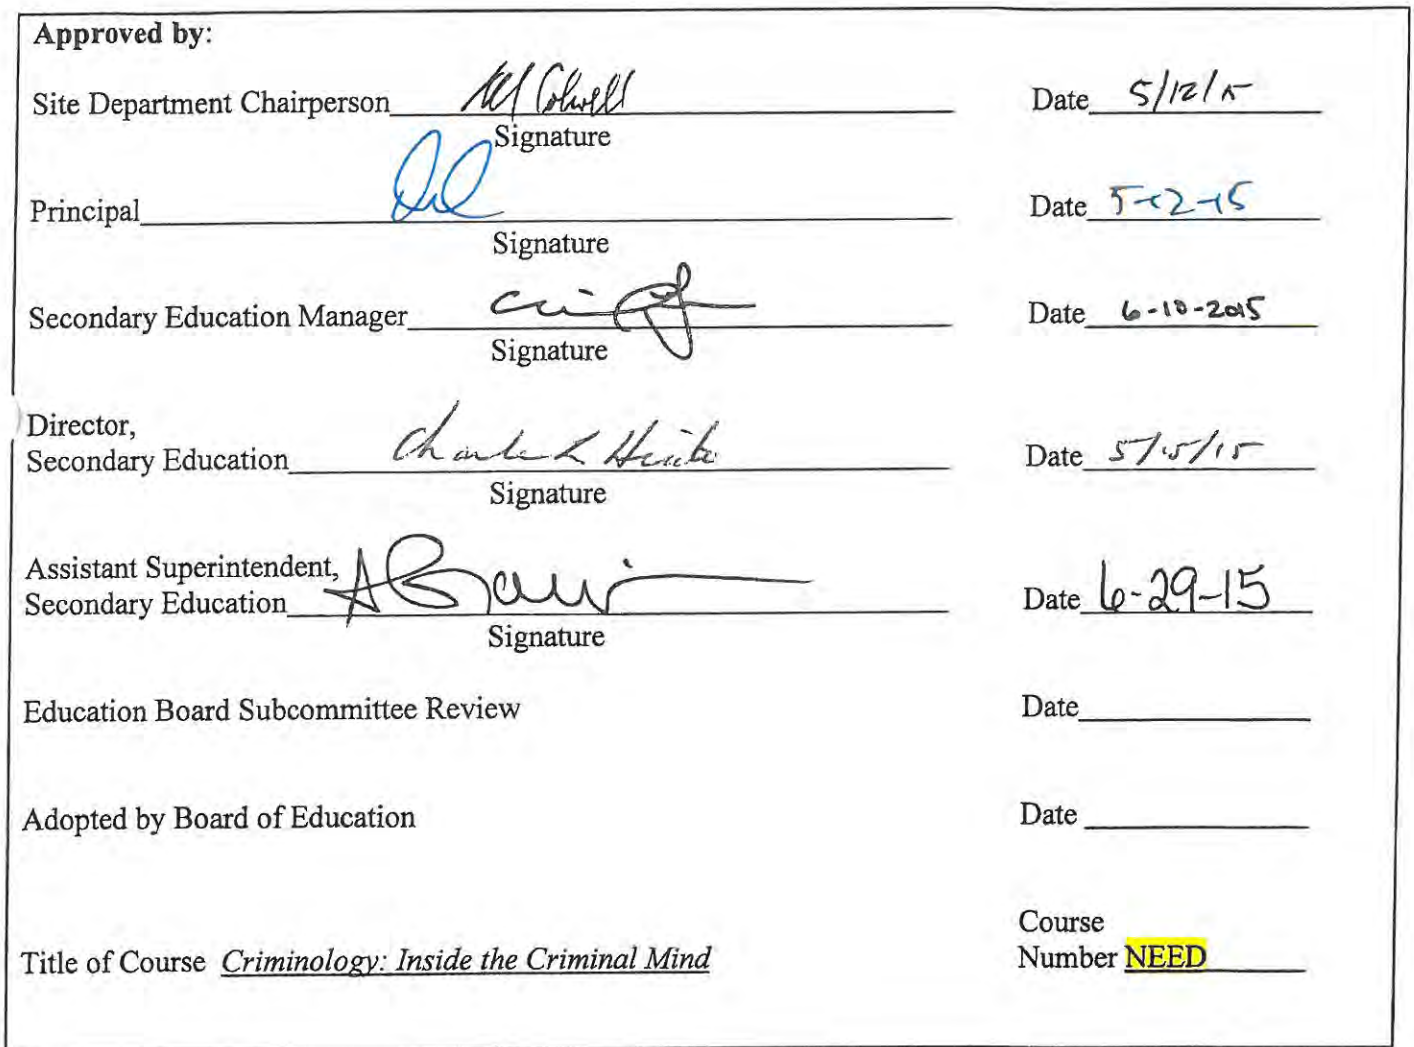 Approved by:
Site Department Chairperson Colwell Date 5/12/15
Signature
Principal Date 5-12-15
Signature
Secondary Education Manager Date 6-10-2015
Signature
Director,
Secondary Education Date 5/15/15
Signature
Assistant Superintendent,
Secondary Education Date 6-29-15
Signature
Education Board Subcommittee Review Date
Adopted by Board of Education Date
Course
Title of Course Criminology: Inside the Criminal Mind Number NEED